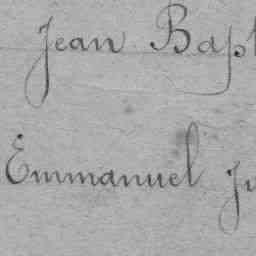 Jean Bapt
Emmanuel Ju